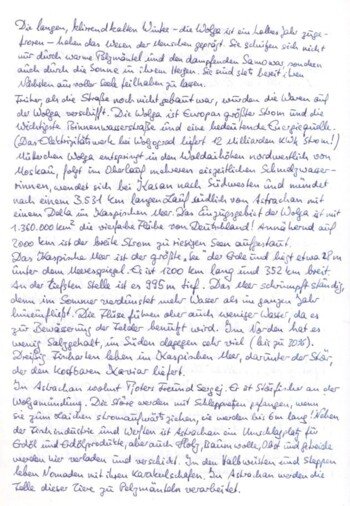 Die langen, klirrendkalten Winter - die Wolga ist ein halbes Jahr zuge-
froren - haben das Wesen der Menschen geprägt. Sie schützen sich nicht
nur durch warme Pelzmäntel und den dampfenden Samowar, sondern
auch durch die Sonne in ihrem Herzen. Sie sind stets bereit, ihren
Nächsten aus voller Seele teilhaben zu lassen.
Früher, als die Straße noch nicht gebaut war, wurden die Waren auf
der Wolga verschifft. Die Wolga ist Europas größter Strom und die
wichtigste Binnenwasserstraße und eine bedeutende Energiequelle.
(Das Elektrizitätswerk bei Wolgograd liefert 12 Milliarden kWh Strom!)
Mütterchen Wolga entspringt in den Waldaihöhen nordwestlich von
Moskau, folgt im Oberlauf mehreren eiszeitlichen Schmelzwasser-
rinnen, wendet sich bei Kasan nach Südwesten und mündet
nach einem 3.531 km langen Lauf südlich von Astrachan mit
einem Delta im Kaspischen Meer. Das Einzugsgebiet der Wolga ist mit
1.360.000 km² die vierfache Fläche von Deutschland! Annähernd auf
2000 km ist der breite Strom zu riesigen Seen aufgestaut.
Das Kaspische Meer ist der größte „See" der Erde und liegt etwa 28 m
unter dem Meeresspiegel. Er ist 1200 km lang und 352 km breit.
An der tiefsten Stelle ist es 995 m tief. Das Meer schrumpft ständig,
denn im Sommer verdunstet mehr Wasser als im ganzen Jahr
hineinfließt. Die Flüsse führen aber auch weniger Wasser, da es
zur Bewässerung der Felder benutzt wird. Im Norden hat es
wenig Salzgehalt, im Süden dagegen sehr viel (bis zu 30%).
Dreißig Fischarten leben im Kaspischen Meer, darunter der Stör,
der den kostbaren Kaviar liefert.
In Astrachan wohnt Pjoters Freund Sergej. Er ist Störfischer an der
Wolgamündung. Die Störe werden mit Schleppnetzen gefangen, wenn
sie zum Laichen stromaufwärts ziehen, sie werden bis 6 m lang! Neben
der Fischindustrie und Werften ist Astrachan ein Umschlagplatz für
Erdöl und Erdölprodukte, aber auch Holz, Baumwolle, Obst und Getreide
werden hier verladen und verschickt. In den Halbwüsten und Steppen
leben Nomaden mit ihren Karakulschafen. In Astrachan werden die
Felle dieser Tiere zu Pelzmänteln verarbeitet.